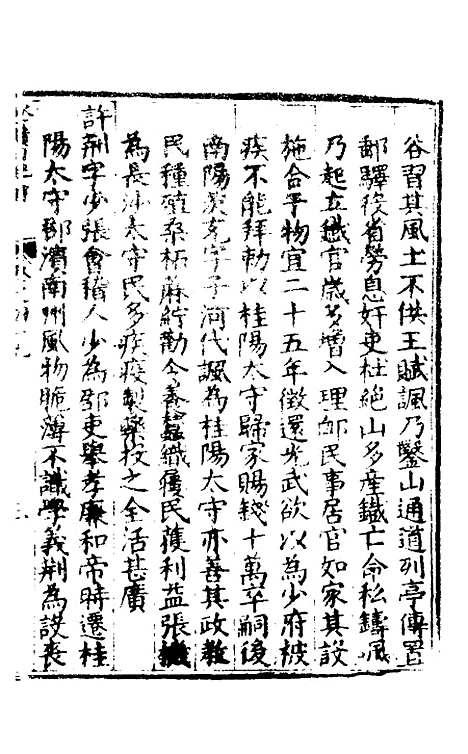 谷習其風土不供王賦諷乃鑿山通道列亭傳置
郵驛役省勞息奸吏杜絶山多産鐵亡命私鑄諷
乃起立鐵官歲多增入理邺民事居官如家其設
施合乎物宜二十五年徵還光武欲以為少府被
疾不能拜勅以桂陽太守歸家賜錢十萬卒嗣後
南陽茨充字子河代諷為桂陽太守亦善其政教
民種殖桑柘麻紵勸令養蠶織履民獲利益張
為長沙太守民多疾疫製藥投之全活甚廣
許荆字少張會稽人少為郡吏舉孝廉和帝時遷桂
陽太守郡濱南州風物脆薄不識學義荆為設喪